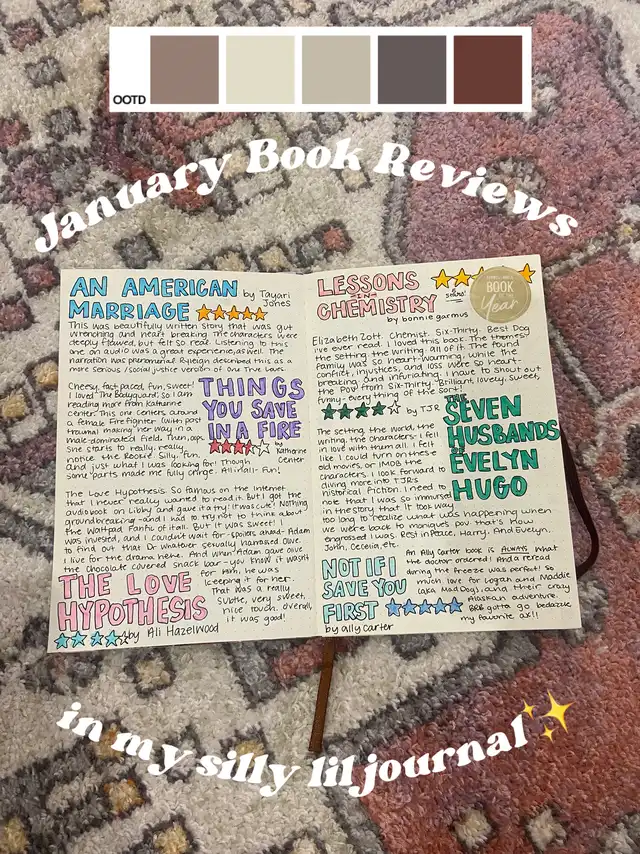 OOTD
January Book Reviews
AN AMERICAN
MARRIAGE
by Tayari
Jones
This was beautifully written story that was gut
wrenching and heart breaking. The characters were
deeply flawed, but felt so real. Listening to this
one on audio was a great experience, as well. The
narration was phenomenal. Kyleigh described this as a
more serious /social justice version of One True Loves.
Cheesy, fast paced, fun, sweet!
I loved The Bodyguard, so I am
reading more from Katherine
center. This one centers around
a female Firefighter (with past
trauma) making her way in a
male-dominated field. Then, oops,
she starts to really, really
notice the Rookie. Silly, fun,
and just what I was looking for! Though
some parts made me fully cringe. All-in-all- fun!
THINGS
YOU SAVE
IN A FIRE
by
Katherine
Center
The Love Hypothesis. So famous on the Internet
that I never really wanted to read it. But I got the
audiobook on Libby and gave it a try! It was cute! Nothing
groundbreaking - and I had to try not to think about
the Wattpad Fanfic of it all. But it was sweet! I
was invested, and I couldn't wait for - spoilers ahead - Adam
to find out that Dr whatever sexually harassed Olive.
I live for the drama here. And when Adam gave Olive
the chocolate covered snack bar - you know it wasn't
for him, he was
keeping it for her.
That was a really
subtle, very sweet,
nice touch. Overall,
it was good!
THE LOVE
HYPOTHESIS
by Ali Hazelwood
LESSONS
IN
CHEMISTRY
by bonnie garmus
5 stars!
BOOK
OF THE
Year
Elizabeth Zott. Chemist. Six-Thirty. Best Dog
I've ever read. I loved this book. The themes,
the setting, the writing, all of it. The found
family was so heart-warming, while the
conflict, injustices, and loss were so heart
breaking and infuriating. I have to shout out
the POV from Six-Thirty. Brilliant, lovely, sweet,
funny - every thing of the sort!
by TJR
THE
SEVEN
HUSBANDS
OF
EVELYN
HUGO
The setting, the world, the
writing, the characters - I fell
in love with them all. I felt
like I could turn on these
old movies, or IMDB the
characters. I look forward to
diving more into TJR's
historical fiction. I need to
note that I was so immersed
in the story that it took way
too long to realize what was happening when
we were back to Monique's pov. that's how
engrossed I was. Rest in Peace, Harry. And Evelyn,
John, Cecelia, etc.
NOT IF I
SAVE YOU
FIRST
by ally Carter
An Ally Carter book is ALWAYS what
the doctor ordered! And a reread
during the freeze was perfect! So
much love for Logan and Maddie
(aka Mad Dog), and their crazy
Alaskan adventure.
BRB gotta go bedazzle
my favorite ax!!
in my silly lil journal✨